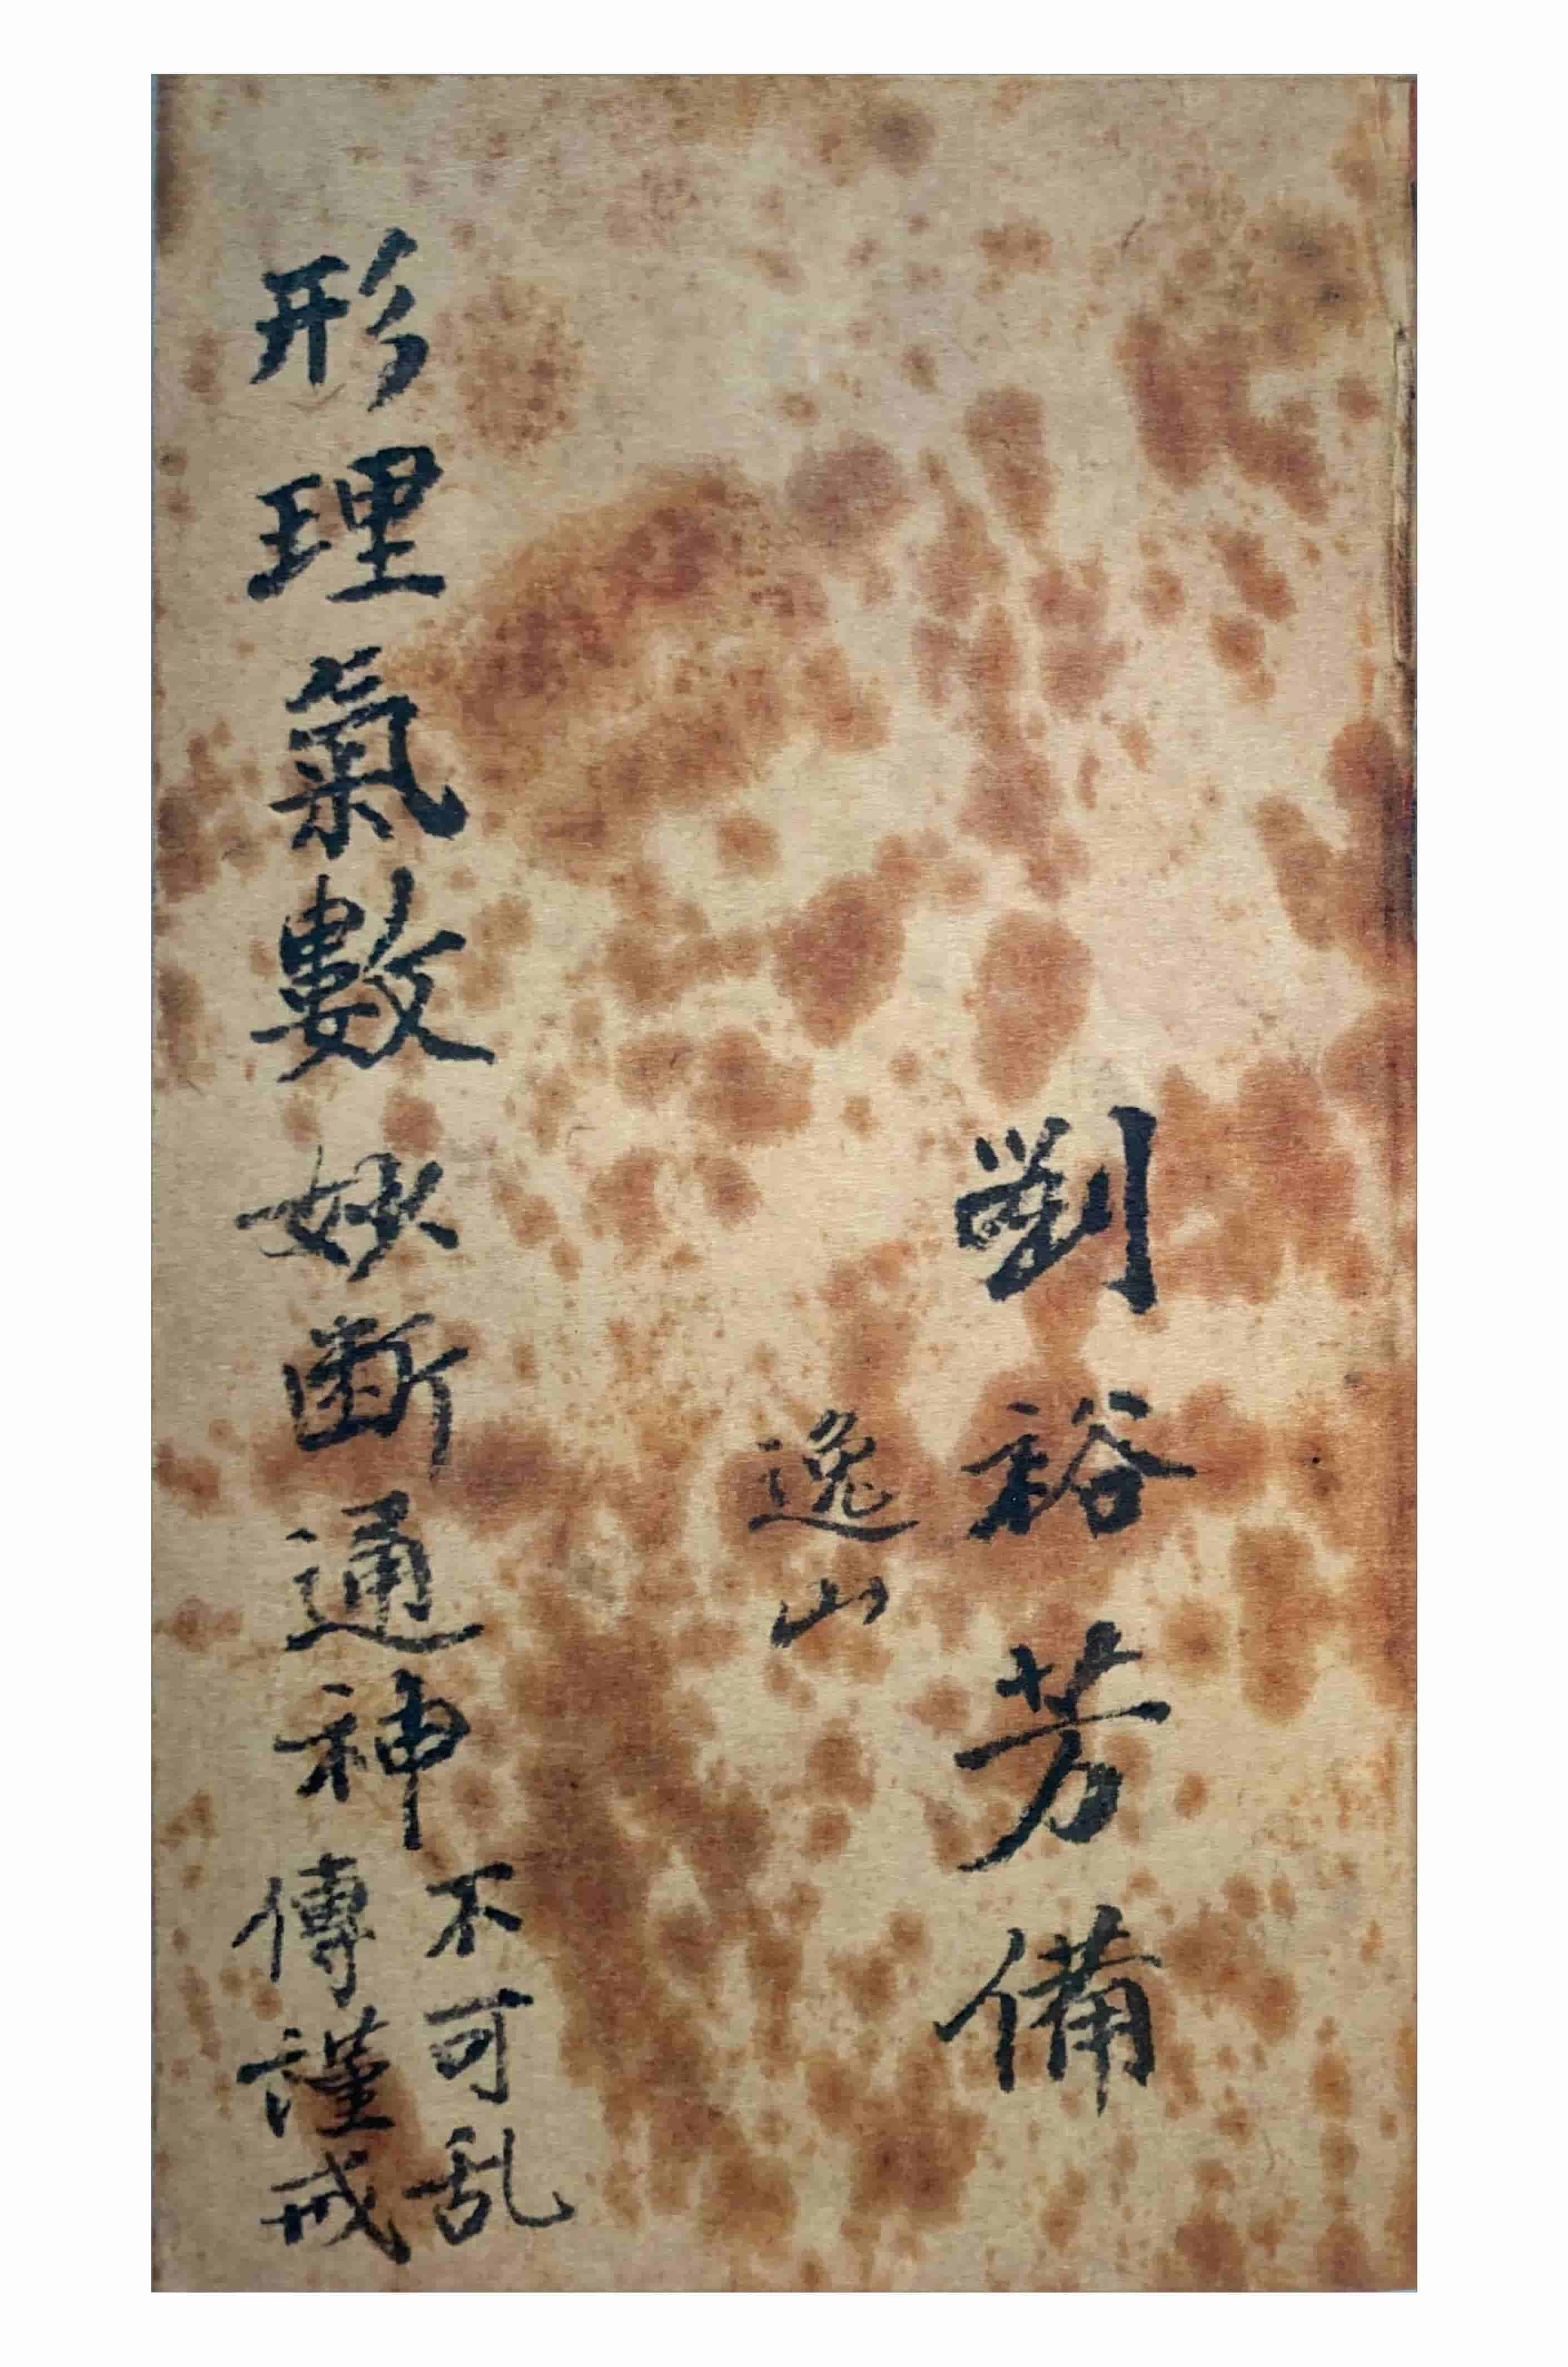 劉裕芳備
逸山
形理氣數妙断通神
不可乱
傳謹戒